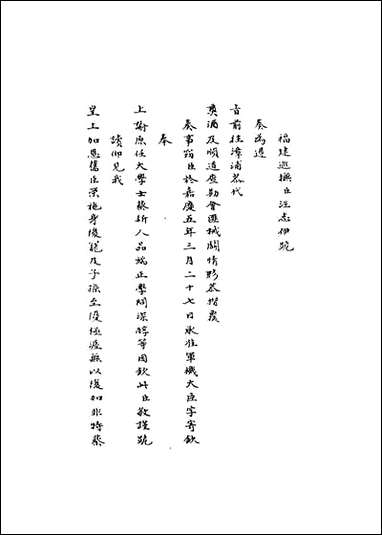 福建巡撫臣汪志伊跪
奏為遵
旨前往漳浦恭代
奠酒及順道查勘會匪械鬬情形恭摺覆
奏事竊臣於嘉慶五年三月二十七日承准軍機大臣字寄欽
奉
上諭原任大學士蔡新人品端正學問深醇等因欽此臣敬謹跪
讀仰見我
皇上加恩舊臣榮施身後寵及子孫至渥極處無以復加非特蔡